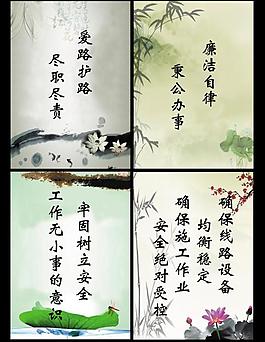 爱路护路
尽职尽责
廉洁自律
秉公办事
牢固树立安全
工作无小事的意识
确保线路设备
均衡稳定
确保施工作业
安全绝对受控